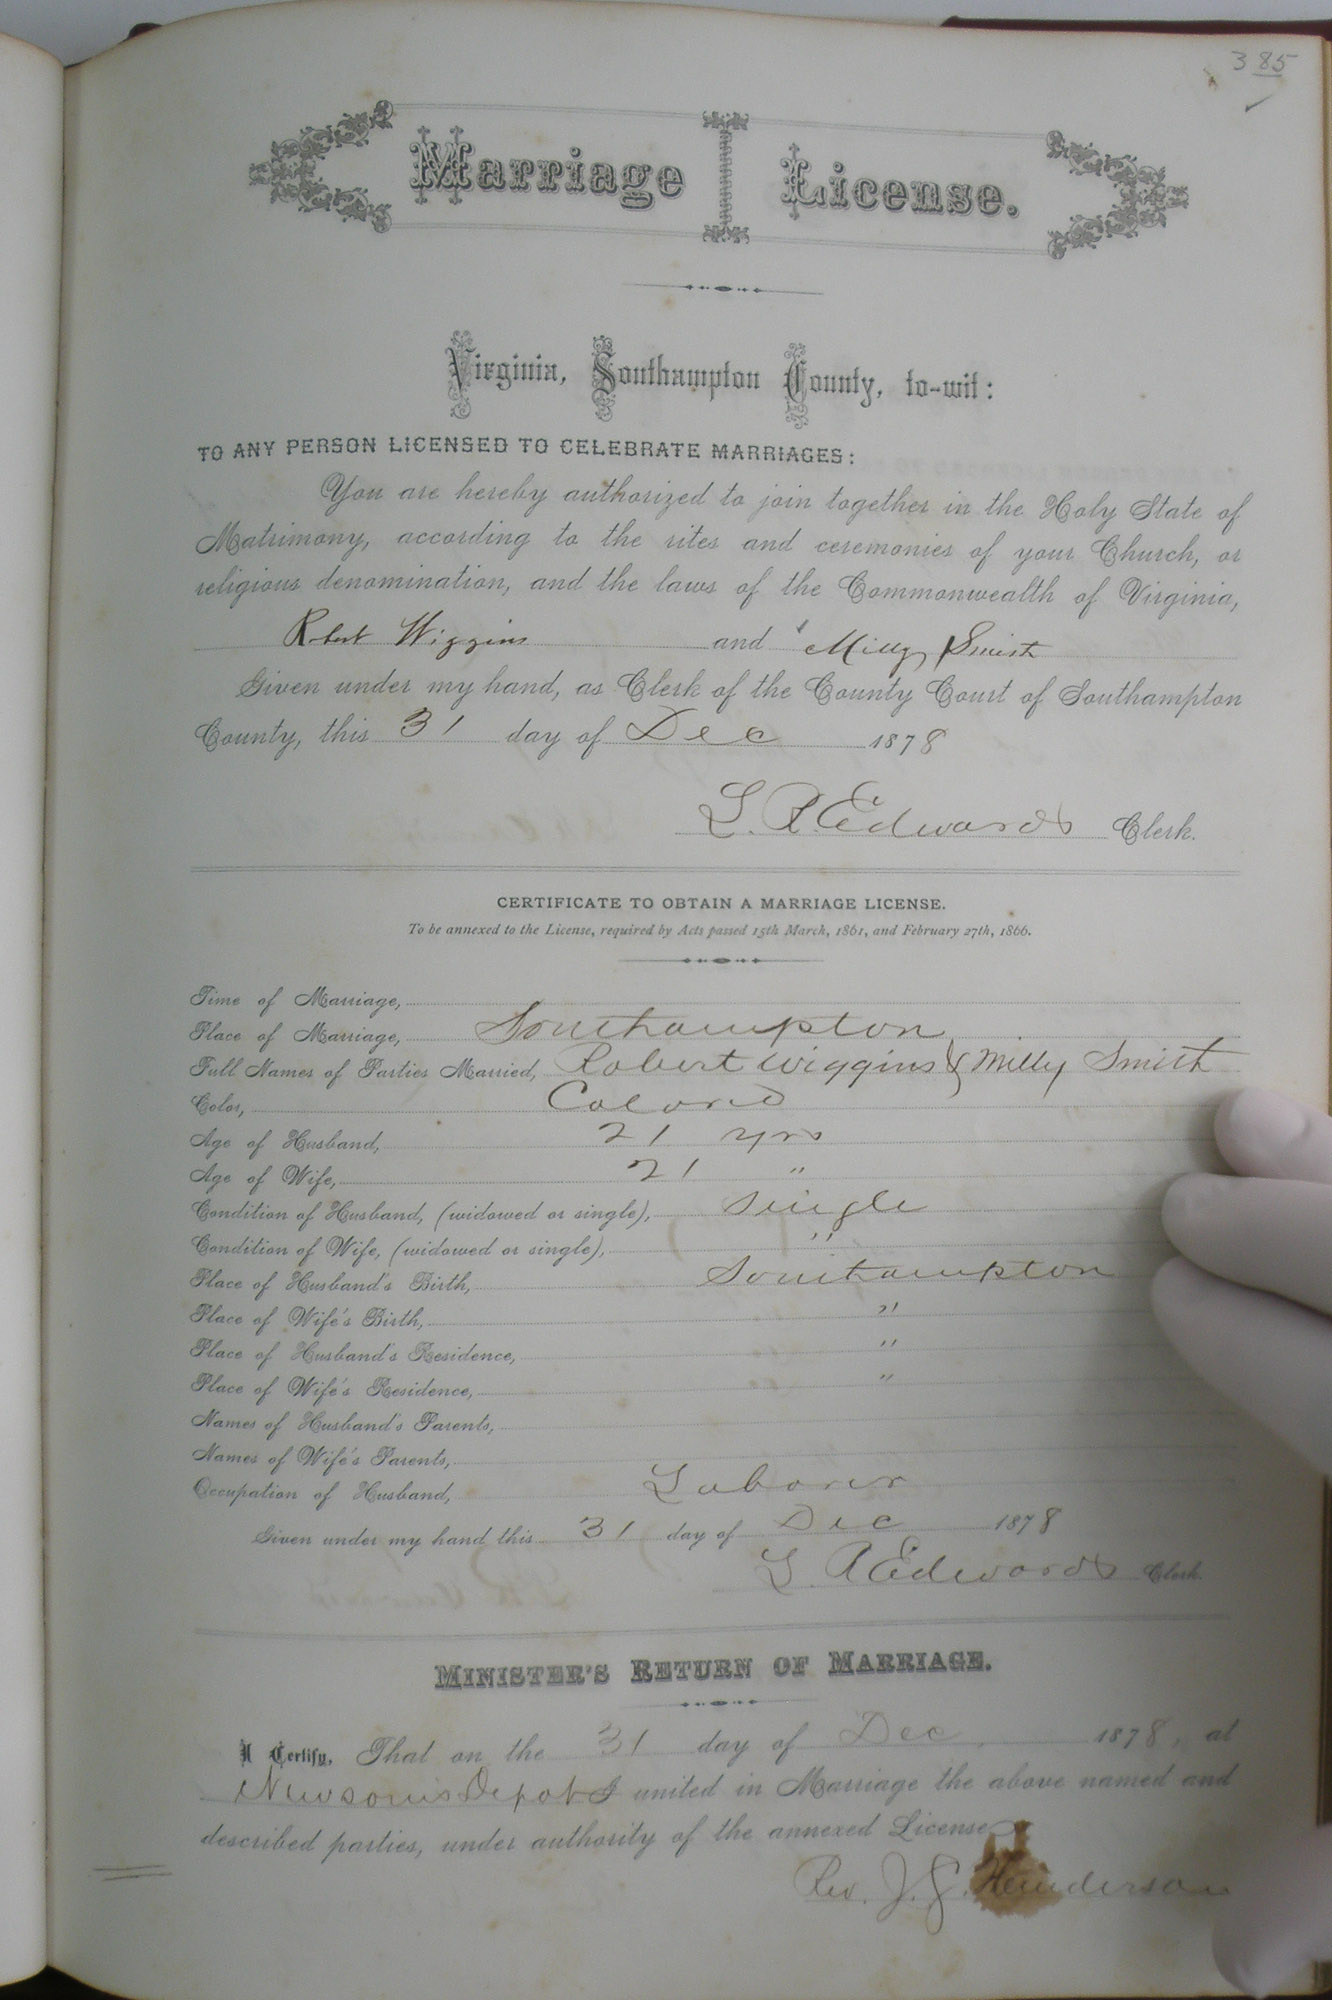 385
Marriage License.
Virginia, Southampton County, to-wit:
TO ANY PERSON LICENSED TO CELEBRATE MARRIAGES:
You are hereby authorized to join together in the Holy State of
Matrimony, according to the rites and ceremonies of your Church, or
religious denomination, and the laws of the Commonwealth of Virginia,
Robert Wiggins and Milly Smith
Given under my hand, as Clerk of the County Court of Southampton
County, this 31 day of Dec 1878
L. R. Edwards Clerk.
CERTIFICATE TO OBTAIN A MARRIAGE LICENSE.
To be annexed to the License, required by Acts passed 15th March, 1861, and February 27th, 1866.
Time of Marriage,
Place of Marriage, Southampton
Full Names of Parties Married, Robert Wiggins & Milly Smith
Color, Colored
Age of Husband, 21 yrs
Age of Wife, 21 "
Condition of Husband, (widowed or single), Single
Condition of Wife, (widowed or single), "
Place of Husband's Birth, Southampton
Place of Wife's Birth, "
Place of Husband's Residence, "
Place of Wife's Residence, "
Names of Husband's Parents,
Names of Wife's Parents,
Occupation of Husband, Laborer
Given under my hand this 31 day of Dec 1878
L. R. Edwards Clerk.
MINISTER'S RETURN OF MARRIAGE.
I Certify, That on the 31 day of Dec. 1878, at
Newsom's Depot I united in Marriage the above named and
described parties, under authority of the annexed License
Rev. J. G. Henderson